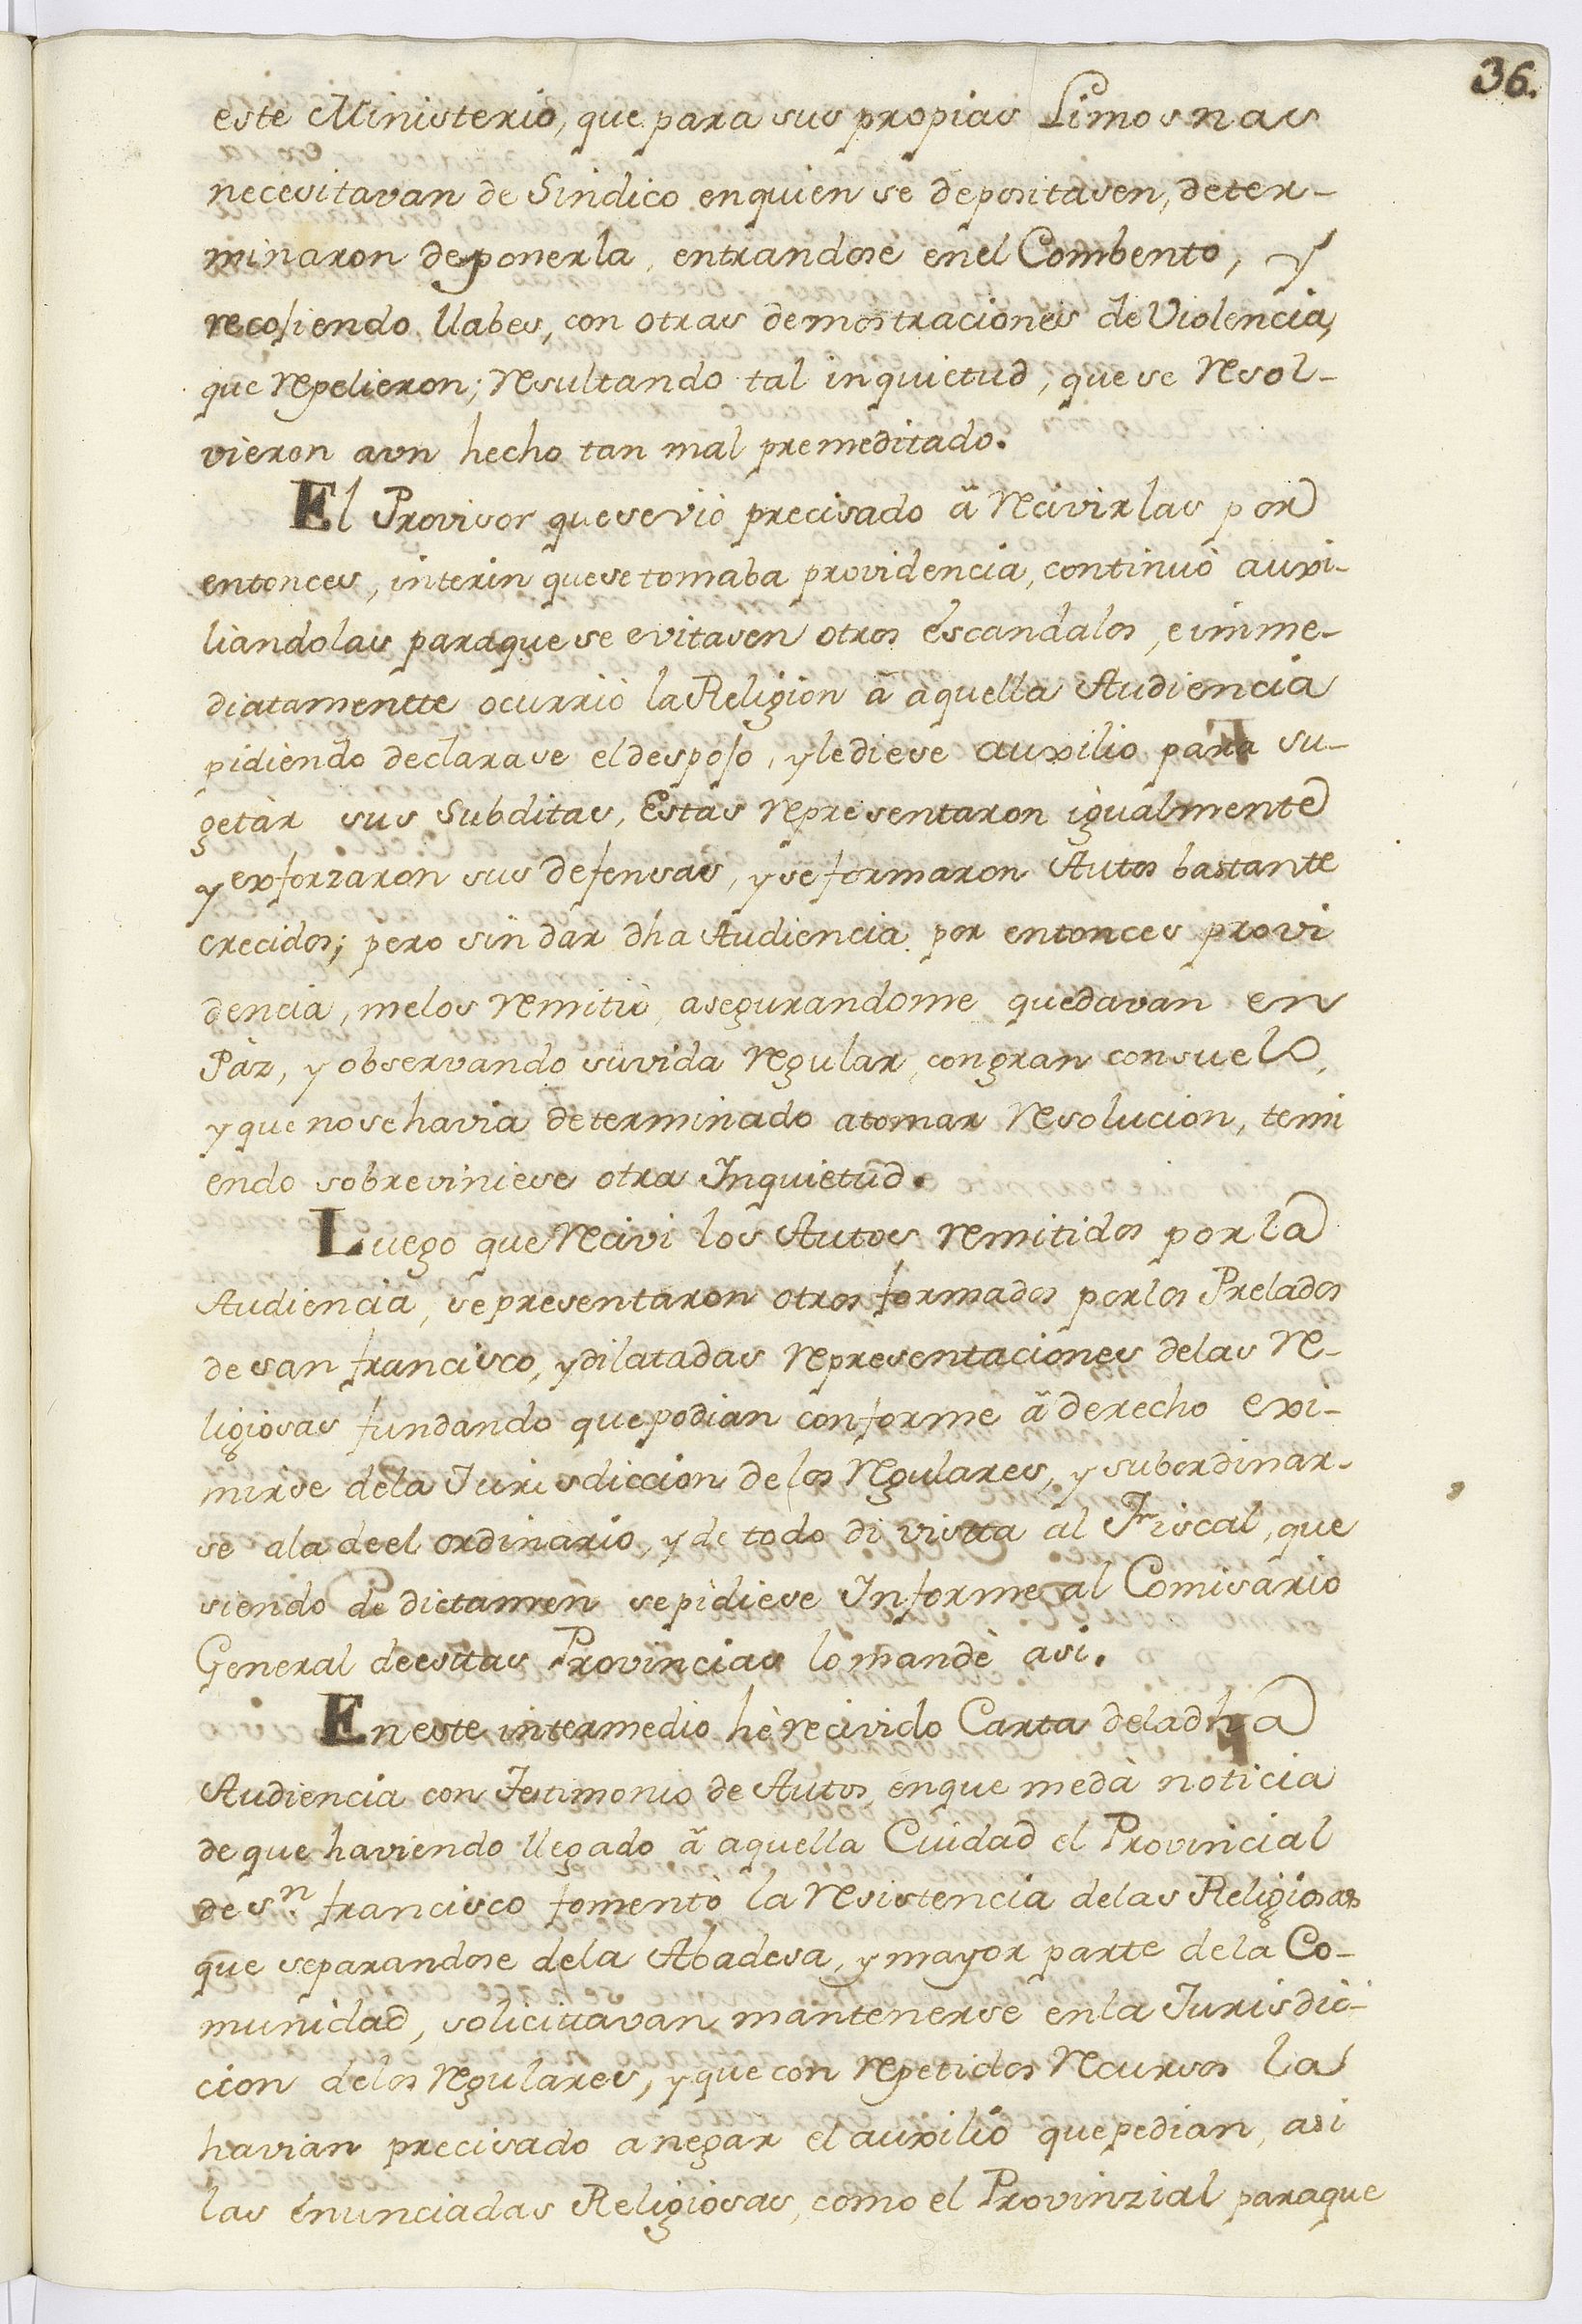 36.
este Ministerio, que para sus propias Limosnas
necesitavan de Sindico en quien se depositasen, deter-
minaron deponerla, entrandose en el Combento, y
recojiendo llabes, con otras demostraciones de Violencia,
que repelieron; resultando tal inquietud, que se resol-
vieron aun hecho tan mal premeditado.
El Provisor que se viò precisado â recivirlas por
entonces, interin que se tomaba providencia, continuò auxi-
liandolas para que se evitasen otros escandalos, e imme-
diatamentte ocurriò la Religion â aquella Audiencia
pidiendo declarase el despojo, y le diese auxilio para su-
getàr sus Subditas, Estas representaron igualmente
y exforzaron sus defensas, y se formaron Autos bastante
crecidos; pero sin dar dha Audiencia por entonces provi
dencia, me los remitiò, asegurandome quedavan en
Pàz, y observando su vida regular, con gran consuelo,
y que no se havia determinado a tomar resolucion, temi
endo sobreviniese otra Inquietud.
Luego que recivi los Autos remitidos por la
Audiencia, se presentaron otros formados por los Prelados
de san francisco, y dilatadas representaciones de las re-
ligiosas fundando que podian conforme â derecho exi-
mirse de la Jurisdiccion de los regulares, y subordinar-
se a la de el ordinario, y de todo di vistta al Fiscal, que
siendo de dictamen se pidiese Informe al Comisario
General de esttas Provincias lo mandè asi.
En este intermedio hè recivido Carta de la dha
Audiencia con Testimonio de Autos, en que me dà noticia
de que haviendo llegado â aquella Cuidad el Provincial
de Sn. francisco fomentò la resistencia de las Religiosas
que separandose de la Abadesa, y mayor parte de la Co-
munidad, solicittavan mantenerse en la Jurisdic-
cion de los regulares, y que con repetidos recursos la
havian precisado a negar el auxilio que pedian, asi
las enunciadas Religiosas, como el Provinzial para que